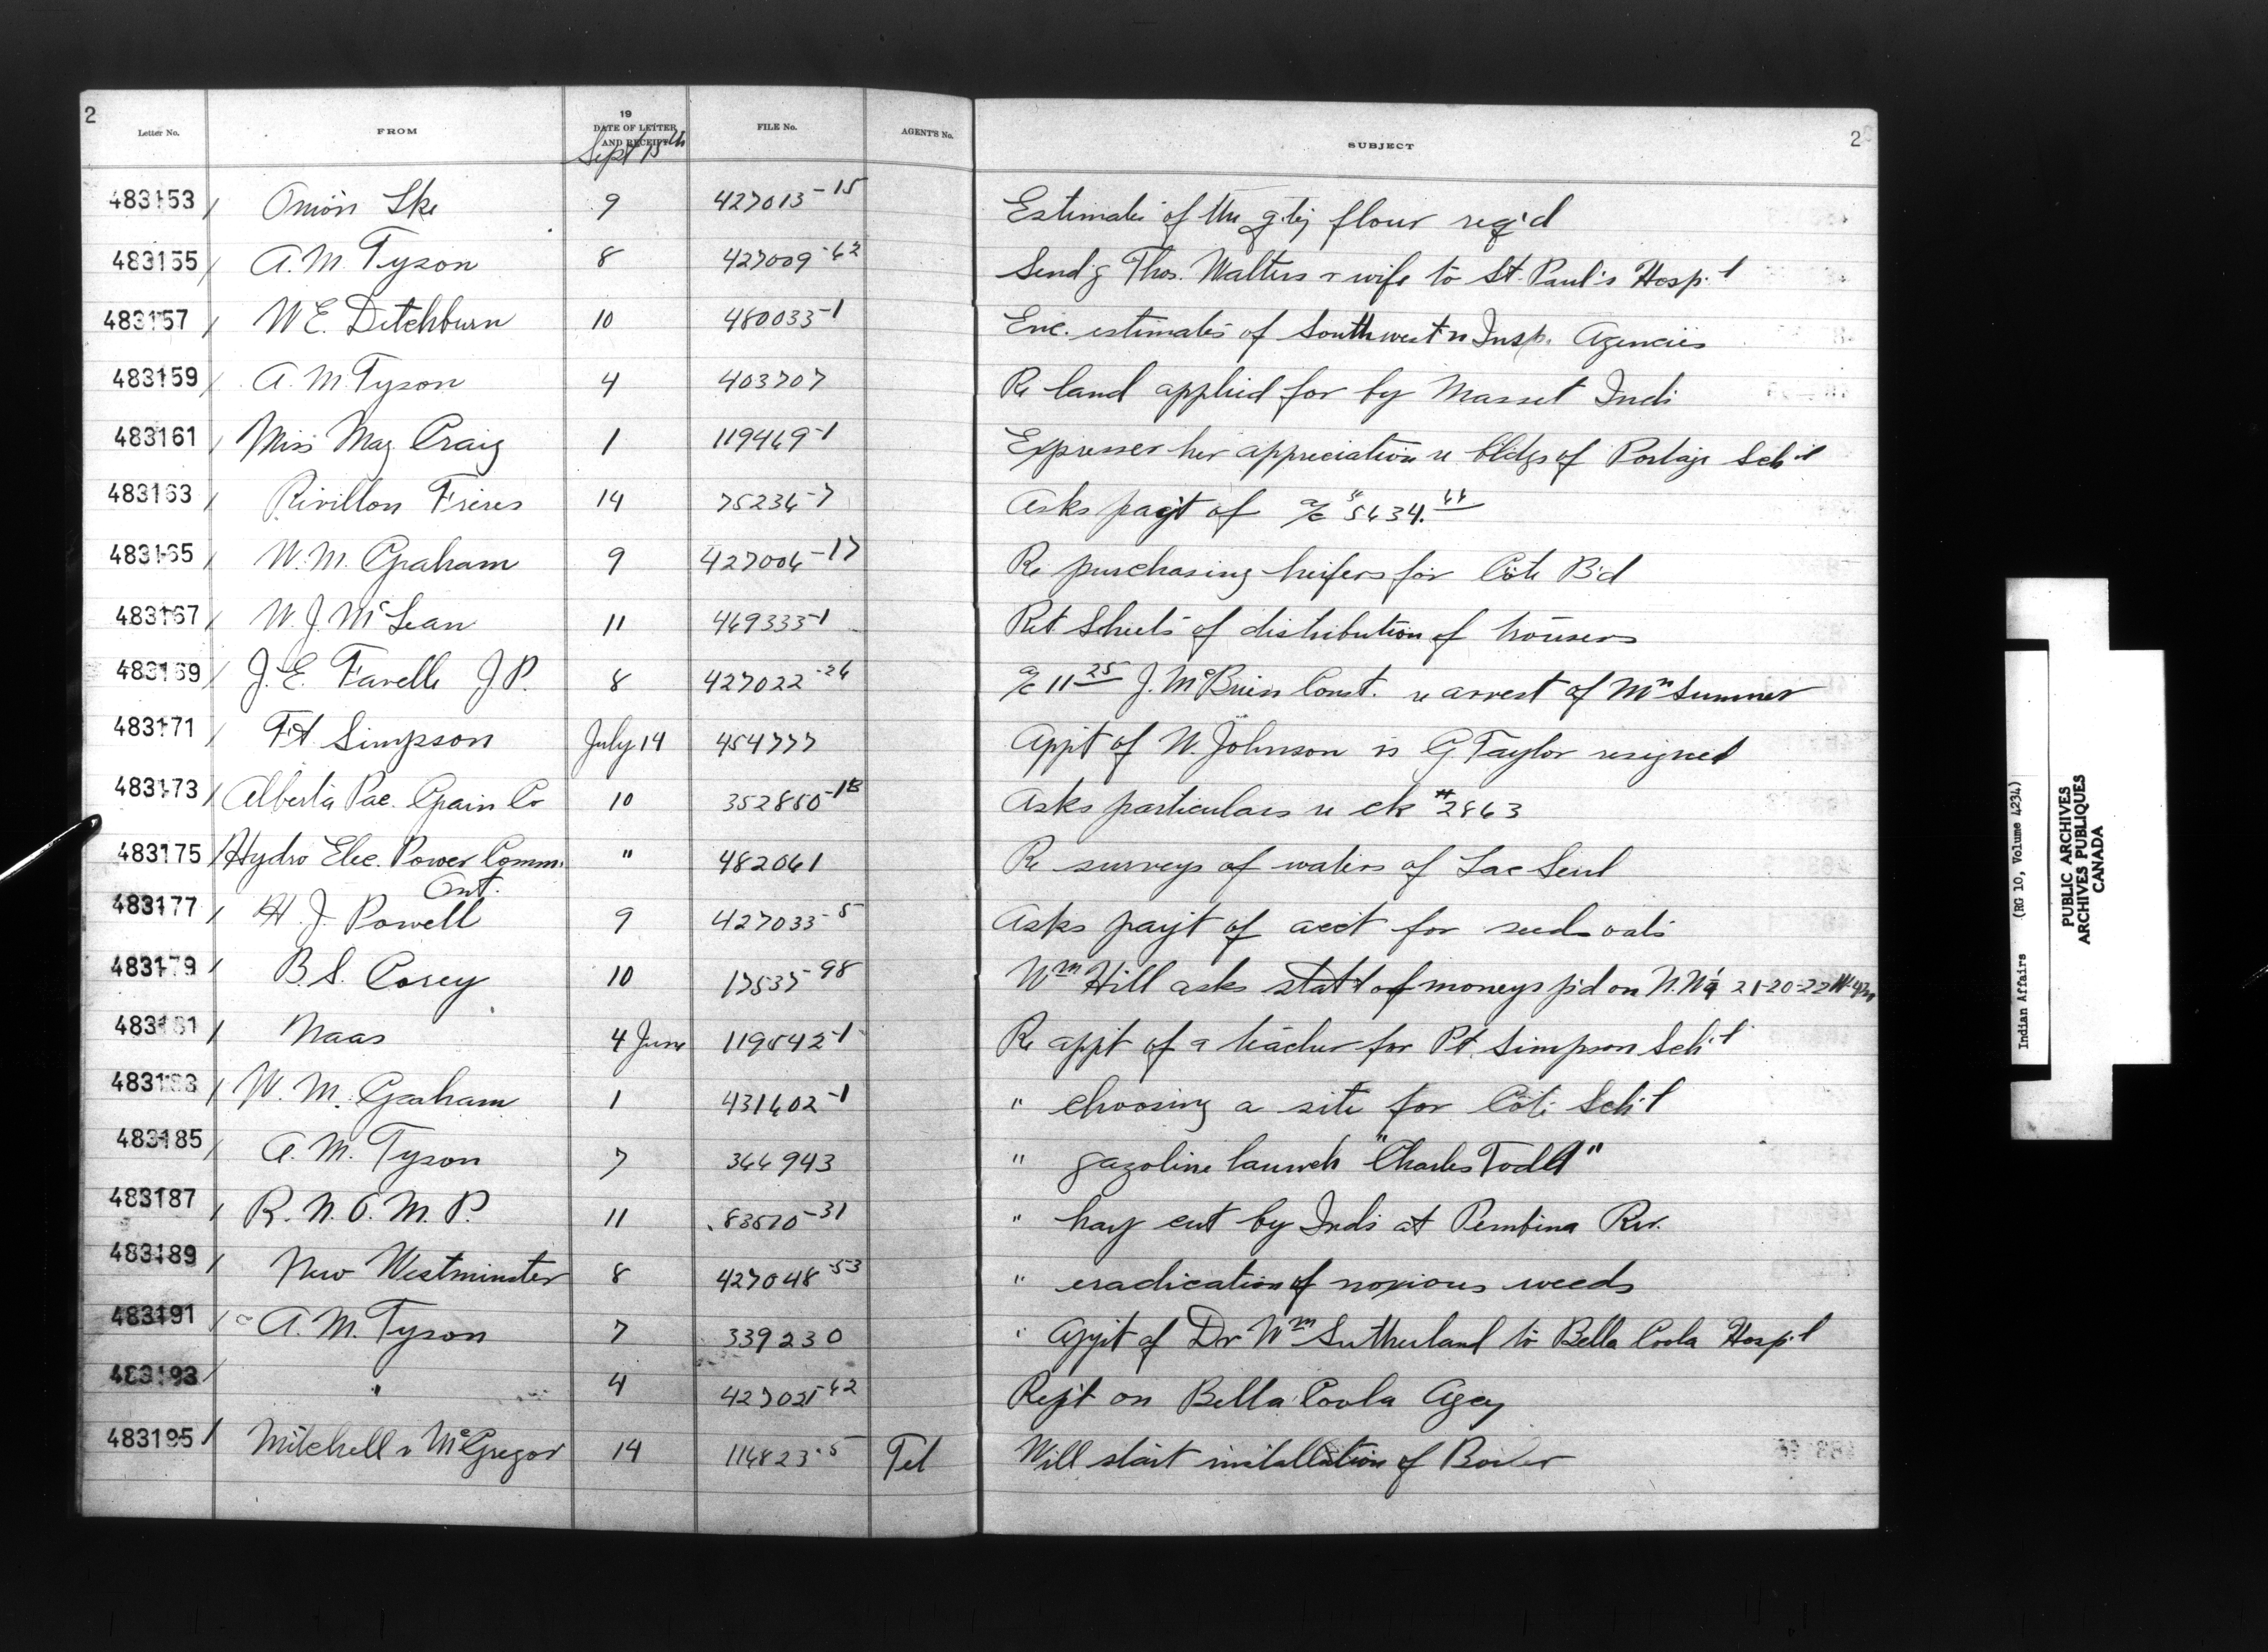 2
Letter No. FROM 19 DATE OF LETTER AND RECEIPT FILE No. AGENT'S No. SUBJECT 2
Sept 15th
483153 Onion Lke 9 427013-15 Estimate of the q'ty flour req'd
483155 A. M. Tyson 8 427009-62 Send'g Thos. Walters & wife to St. Paul's Hosp'l
483157 W. E. Ditchburn 10 480033-1 Enc. estimates of Southwest'n Insp. Agencies
483159 A. M. Tyson 4 403707 Re land applied for by Masset Inds
483161 Miss May Craig 1 119469-1 Expresses her appreciation re bldgs of Portage Sch'l
483163 Rivillon Freres 14 75236-7 Asks pay't of a/c $5634.66
483165 W. M. Graham 9 427006-17 Re purchasing heifers for Cote B'd
483167 W. J. McLean 11 469333-1 Ret Sheets of distribution of trousers
483169 J. E. Farelle J. P. 8 427022-26 a/c 11 25 J. McBrien Const. re arrest of Mrs Sumner
483171 Ft. Simpson July 14 454777 App't of W. Johnson is G. Taylor resigned
483173 Alberta Pac. Grain Co 10 352850-13 Asks particulars re ck #2863
483175 Hydro Elec. Power Comm. " 482061 Re surveys of waters of Lac Seul
Ont.
483177 H. J. Powell 9 427033-5 Asks pay't of acct for seed oats
483179 B. S. Corey 10 17537-98 Wm Hill asks stat't of moneys p'd on N. W¼ 21-20-22 W. 4m
483181 Naas 4 June 119542-1 Re app't of a teacher for Pt. Simpson Sch'l
483183 W. M. Graham 1 431602-1 " choosing a site for Cote Sch'l
483185 A. M. Tyson 7 366943 " gazoline launch "Charles Todd"
483187 R. N. W. M. P. 11 83570-31 " hay cut by Inds at Pembina Riv.
483189 New Westminster 8 427048-53 " eradication of noxious weeds
483191 A. M. Tyson 7 339230 " App't of Dr Wm Sutherland to Bella Coola Hosp'l
483193 " 4 427021-62 Rep't on Bella Coola Agcy
483195 Mitchell & McGregor 14 116823-5 Tel Will start installation of Boiler
Indian Affairs (RG 10, Volume 4234)
PUBLIC ARCHIVES
ARCHIVES PUBLIQUES
CANADA